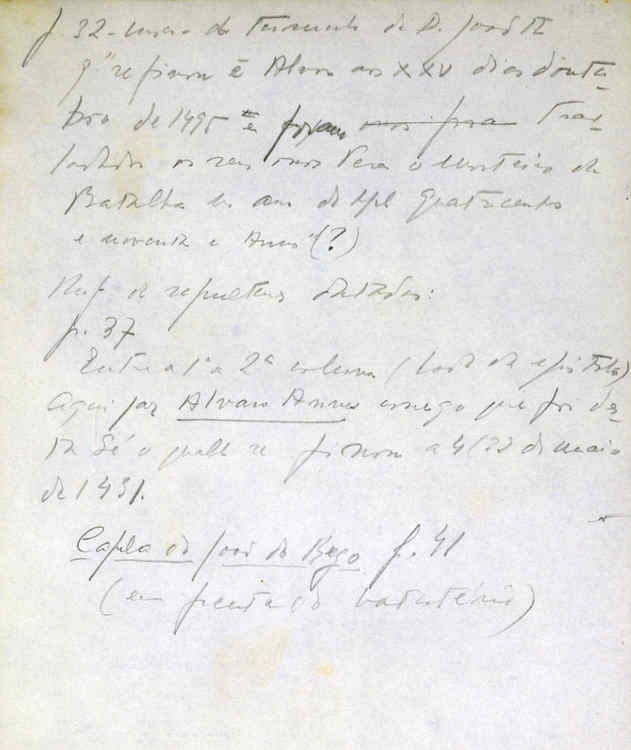 f. 32 - do de D. João II
q" se finou ē Alvor aos XXV dias doutu-
bro de 1495 e foram ~~ossos fora~~ tras-
ladados os seus ossos pera o Mosteiro da
Batalha no ano de Mil quatrocentos
e noventa e " (?)
de sepulturas datadas:
f. 37
Entre a 1ª a 2ª coluna (lado da epistola)
Aqui jaz Alvaro Annes conego que foi des-
ta Sé o quall se finou a 22 de maio
de 1431.
Capela do João do Rego f. 41
(em frente ao batisterio)